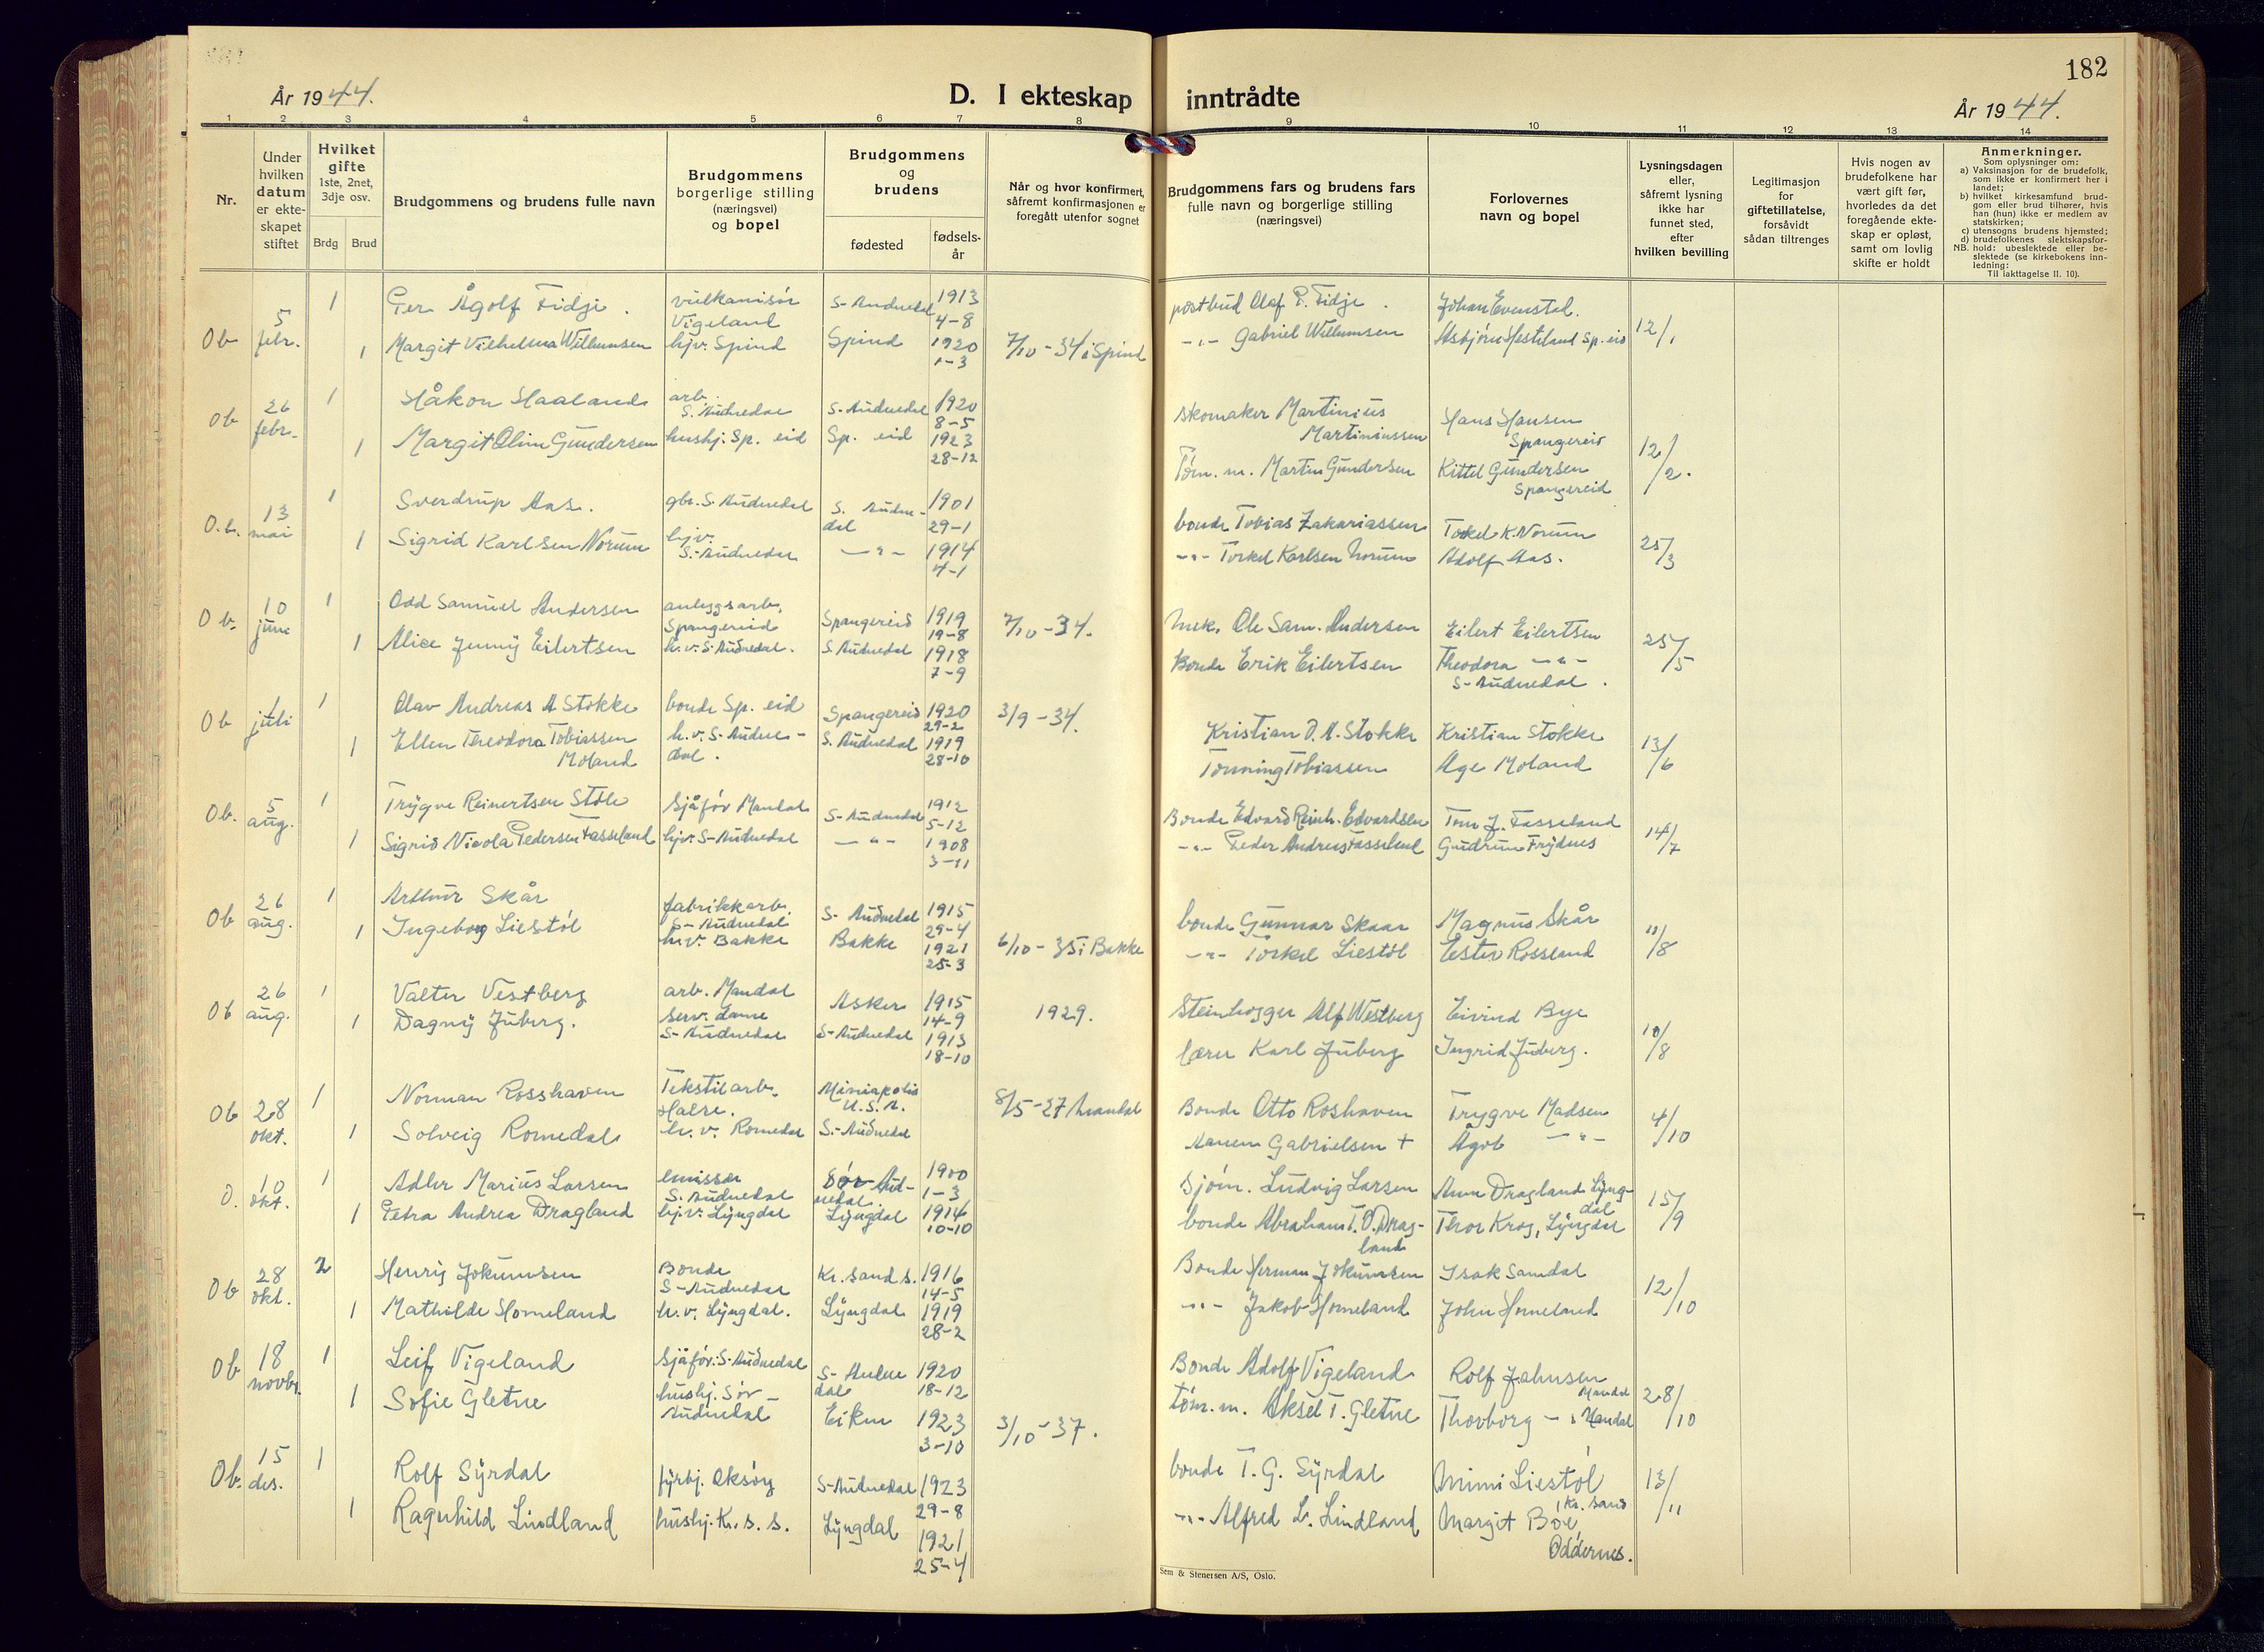 182
År 1944.
D. I ekteskap inntrådte
År 1944.
1 2 3 4 5 6 7 8 9 10 11 12 13 14
Nr.
Under hvilken datum er ekte-skapet stiftet
Hvilket gifte 1ste, 2net, 3dje osv.
Brdg
Brud
Brudgommens og brudens fulle navn
Brudgommens borgerlige stilling (næringsvei) og bopel
Brudgommens og brudens
fødested
fødsels-år
Når og hvor konfirmert, såfremt konfirmasjonen er foregått utenfor sognet
Brudgommens fars og brudens fars fulle navn og borgerlige stilling (næringsvei)
Forlovernes navn og bopel
Lysningsdagen eller, såfremt lysning ikke har funnet sted, efter hvilken bevilling
Legitimasjon for giftetillatelse, forsåvidt sådan tiltrenges
Hvis nogen av brudefolkene har vært gift før, hvorledes da det foregående ekte-skap er opløst, samt om lovlig skifte er holdt
Anmerkninger.
Som oplysninger om:
a) Vaksinasjon for de brudefolk, som ikke er konfirmert her i landet;
b) hvilket kirkesamfund brud-gom eller brud tilhører, hvis han (hun) ikke er medlem av statskirken;
c) utensogns brudens hjemsted;
d) brudefolkenes slektskapsfor-hold: ubeslektede eller be-slektede (se kirkebokens inn-ledning:
NB.
Til iakttagelse II. 10).
Ob 5 febr. 1 Per Ågolf Fidje. vulkanisør Vigeland S-Audnedal 1913 4-8 postbud Olaf P. Fidje. Johan Evenstad. 12/1
1 Margit Vilhelma Willumsen hjv. Spind Spind 1920 1-3 7/10-34 i Spind -"- Gabriel Willumsen Asbjørn Hesteland Sp.eid
Ob 26 febr. 1 Håkon Haaland arb. S. Audnedal S-Audnedal 1920 8-5 skomaker Martinius Martiniussen Hans Hansen Spangereid 12/2.
1 Margit Oline Gundersen hushj. Sp. eid Sp. eid 1923 28-12 Tøm. m. Martin Gundersen Kittel Gundersen Spangereid
O.b. 13 mai 1 Sverdrup Aas. gbr. S-Audnedal S. Audne-dal 1901 29-1 bonde Tobias Zakariassen Torkel K. Norum 25/3
1 Sigrid Karlsen Norum hjv. S-Audnedal -"- 1914 4-1 -"- Torkel Karlsen Norum Adolf Aas.
Ob. 10 juni 1 Odd Samuel Andersen anleggsarb. Spangereid Spangereid 1919 19-8 7/10-34. Mek. Ole Sam. Andersen Eilert Eilertsen 25/5
1 Alice Jenny Eilertsen h.v. S-Audnedal. S. Audnedal 1918 7-9 Bonde Erik Eilertsen Theodora -"- S-Audnedal.
Ob 1 juli 1 Olav Andreas A Stokke bonde Sp. eid Spangereid 1920 29-2 3/9-34. Kristian O. A. Stokke Kristian Stokke 13/6
1 Ellen Theodora Tobiassen Moland h.v. S-Audne-dal. S. Audnedal 1919 28-10 Tønning Tobiassen Åge Moland
Ob. 5 aug. 1 Trygve Reinertsen Støle sjåfør Mandal S-Audnedal 1912 5-12 Bonde Edvard Reinh. Edvardsen Tom J. Fasseland 14/7
1 Sigrid Nicola Pedersen Fasseland hjv. S-Audnedal -"- 1908 3-11 -"- Peder Andreas Fasseland Gudrun Frydnes
Ob 26 aug. 1 Arthur Skår fabrikkarb. S-Audnedal S-Audnedal 1915 29-4 bonde Gunnar Skaar Magnus Skår 11/8
1 Ingeborg Liestøl h.v. Bakke Bakke 1921 25-3 6/10-35 i Bakke -"- Torkel Liestøl Ester Rosseland
Ob 26 aug. 1 Valter Vestberg arb. Mandal Asker 1915 14-9 1929. Steinhogger Alf Westberg Eivind Bye 10/8
1 Dagny Juberg. serv. dame S-Audnedal S-Audnedal 1913 18-10 lærer Karl Juberg Ingrid Juberg.
Ob 28 okt. 1 Norman Rosshaven Tekstilarb. Halse. Miniapolis U.S.A. 8/5-27 Mandal Bonde Otto Roshaven Trygve Madsen 4/10
1 Solveig Romedal h.v. Romedal S.-Audnedal Hanen Gabrielsen + Ågot -"-
O. 10 okt. 1 Adler Marius Larsen emissær S. Audnedal Sør-Aud-nedal 1900 1-3 Sjøm. Ludvig Larsen Anna Dragland Lyng-dal 15/9
1 Petra Andrea Dragland hjv. Lyngdal Lyngdal 1914 10-10 bonde Abraham T. O. Drag-land Thor Krog, Lyngdal
Ob 28 okt. 2 Henry Jokumsen Bonde S-Audnedal Kr. sand s. 1916 14-5 Bonde Herman Jokumsen Isak Samdal 12/10
1 Mathilde Homeland h.v. Lyngdal. Lyngdal 1919 28-2 -"- Jakob Homeland John Homeland
Ob 18 novbr. 1 Leif Vigeland Sjåfør: S-Audnedal S-Audne-dal 1920 18-12 Bonde Adolf Vigeland Rolf Jahnsen Mandal 28/10
1 Sofie Gletne hushj. Sør-Audnedal Eiken 1923 3-10 3/10-37. tøm. m. Aksel T. Gletne Thorborg -"- Mandal
Ob. 15 des. 1 Rolf Syrdal fyrbj. Oksøy S-Audnedal 1923 29-8 bonde T. G. Syrdal Mimi Liestøl, Kr. sand 13/11
1 Ragnhild Lindland hushj. Kr. s. s. Lyngdal 1921 25-4 -"- Alfred L. Lindland Margit Bøe, Oddernes.
Sem & Stenersen A/S, Oslo.